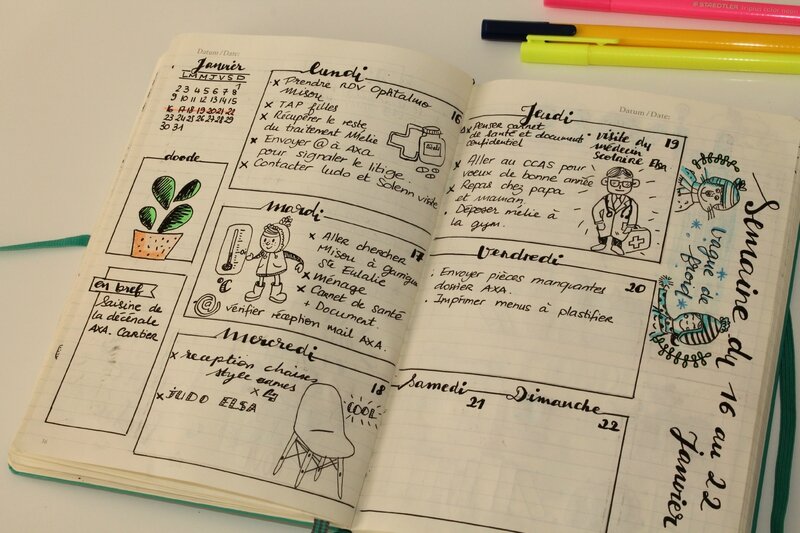 Datum / Date:
Janvier
L M M J V S D
1
2 3 4 5 6 7 8
9 10 11 12 13 14 15
16 17 18 19 20 21 22
23 24 25 26 27 28 29
30 31
doodle
en bref
Saisine de
la décenale
AXA. Cartier
Lundi
16
x Prendre RDV Ophtalmo
Misou
x TAP filles
x Récupérer le reste
du traitement Mélie
x Envoyer @ à Axa
pour signaler le litige
x Contacter Ludo et Solenn visite
Mardi
17
x Aller chercher
Misou à garrigue
Ste Eulalie
x Ménage
x Carnet de santé
+ Document.
°C
@ vérifier réception mail AXA.
Mercredi
18
x reception chaises
style eames
x JUDO ELSA
COOL
Datum / Date:
Jeudi
19
x Penser carnet
de santé et document
confidentiel
visite du
médecin
scolaire Elsa
x Aller au CCAS pour
voeux de bonne année
• Repas chez papa
et maman.
• Déposer mélie à
la gym.
Vendredi
20
• Envoyer pièces manquantes
dossier AXA.
• Imprimer menus à plastifier
Samedi
21
Dimanche
22
Vague de
froid
Semaine du 16 au 22
Janvier
STAEDTLER